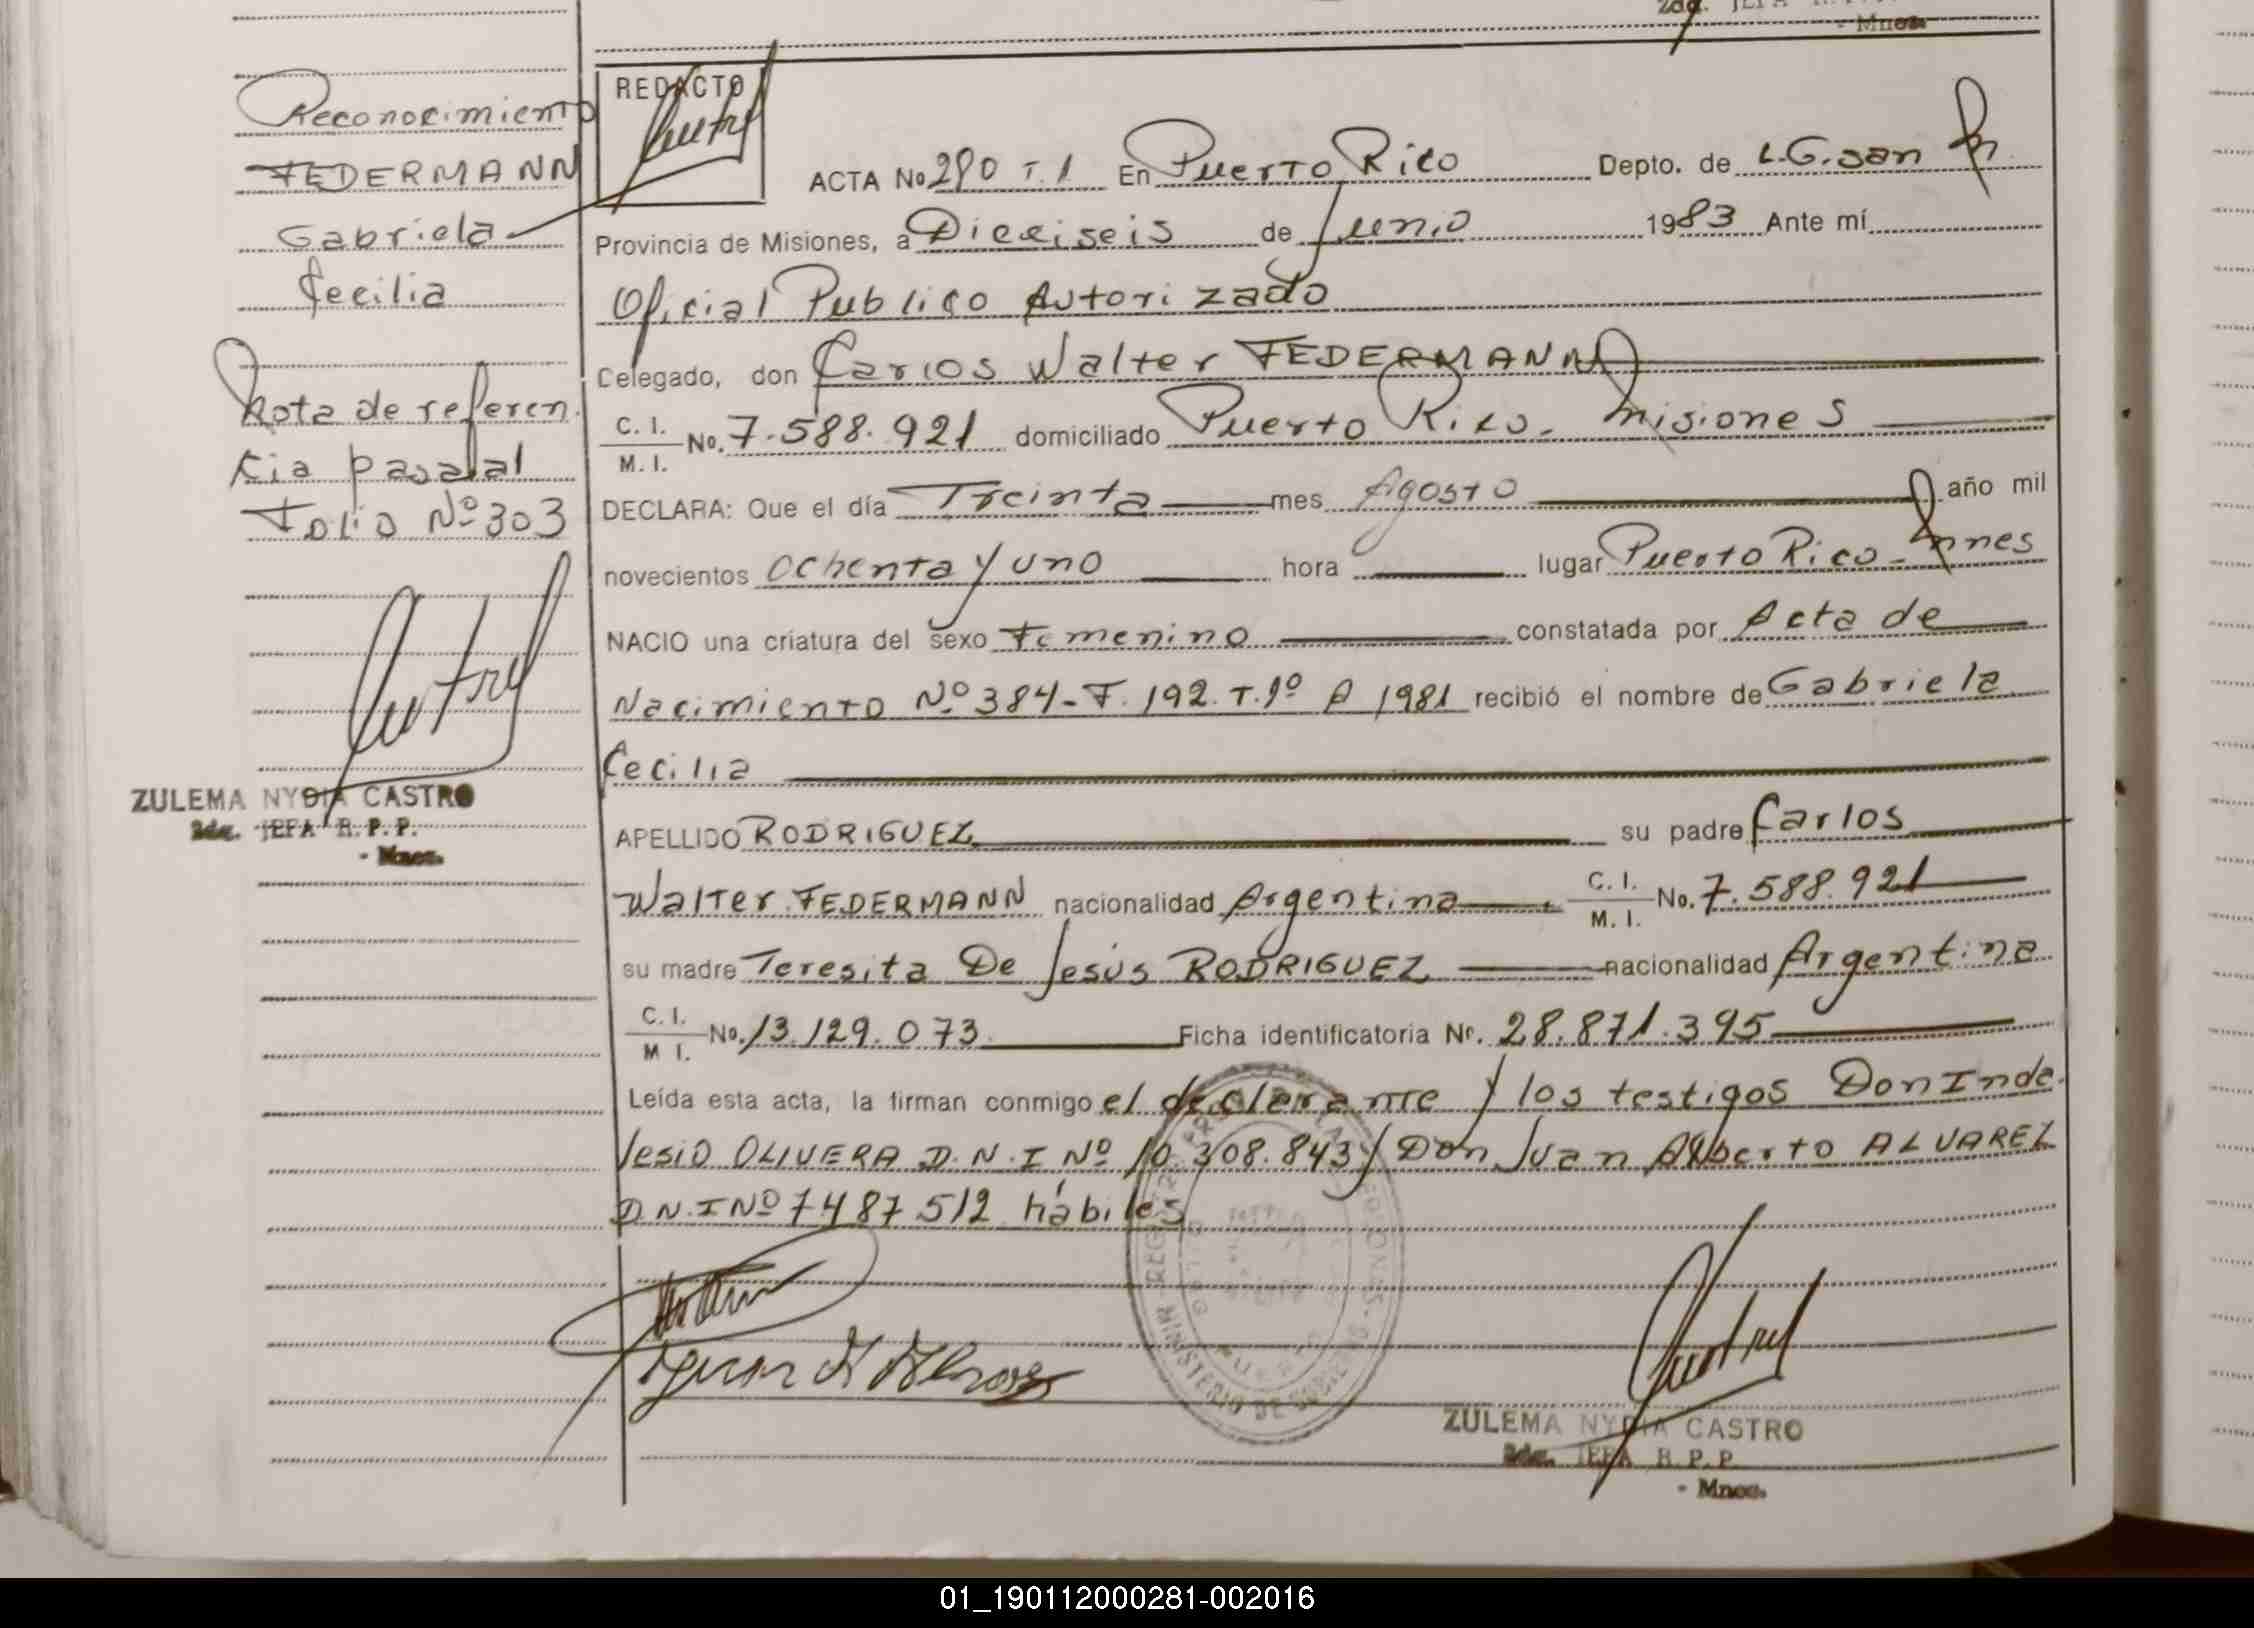 Mnes.
Reconocimiento
FEDERMANN
Gabriela
Cecilia
Nota de referen.
cia pasa al
Folio Nº 303
ZULEMA NYDIA CASTRO
2da. JEFA R. P. P.
- Mnes.
REDACTO
ACTA No 290 T.1 En Puerto Rico Depto. de L.G.San M
Provincia de Misiones, a Dieciseis de Junio 1983 Ante mí
Oficial Publico Autorizado
Celegado, don Carlos Walter FEDERMANN
C. I.
M. I. No. 7.588.921 domiciliado Puerto Rico - Misiones
DECLARA: Que el día Treinta mes Agosto año mil
novecientos ochenta y uno hora lugar Puerto Rico - Mnes
NACIO una criatura del sexo Femenino constatada por Acta de
Nacimiento Nº 384 - F. 192. T.1º A 1981 recibió el nombre de Gabriela
Cecilia
APELLIDO RODRIGUEZ su padre Carlos
Walter FEDERMANN nacionalidad Argentina C. I.
M. I. No. 7.588.921
su madre Teresita De Jesús RODRIGUEZ nacionalidad Argentina
C. I.
M I. No. 13.129.073 Ficha identificatoria Nº. 28.871.395
Leída esta acta, la firman conmigo el declarante y los testigos Don Inde-
lesio OLIVERA D.N.I Nº 10.308.843 y Don Juan Alberto ALVAREZ
D.N.I Nº 7487512 hábiles
MINISTERIO DE GOBIERNO
ZULEMA NYDIA CASTRO
2da. JEFA R. P. P.
- Mnes.
01_190112000281-002016